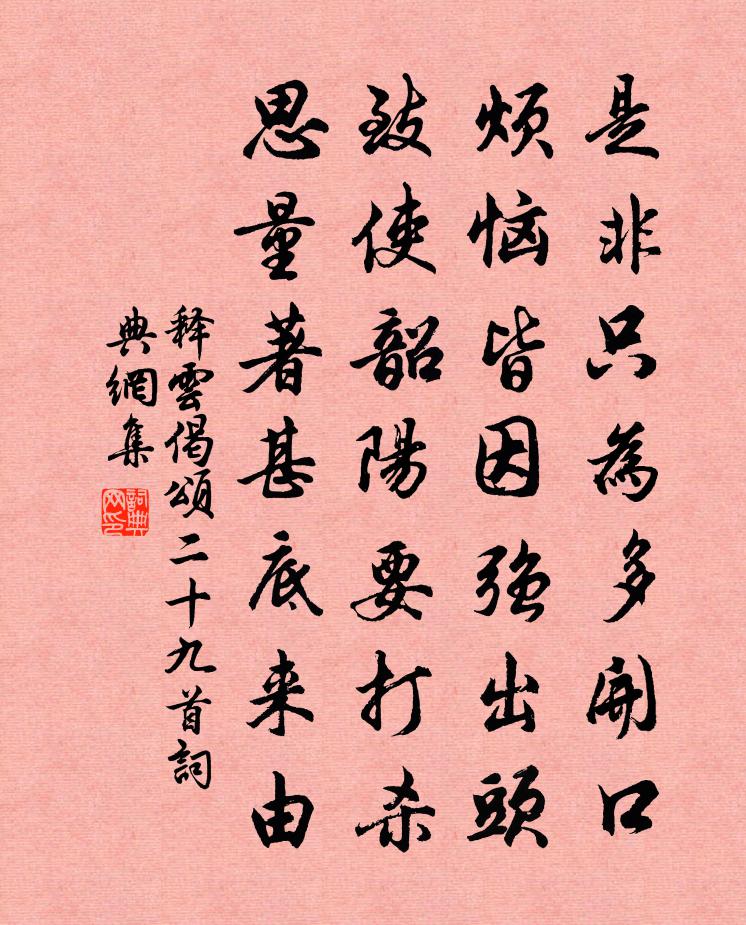 是非只為多開口
烦恼皆因强出頭
致使韶陽要打杀
思量著甚底来由
释雲偈頌二十九首詞
典網集
詞典
网印